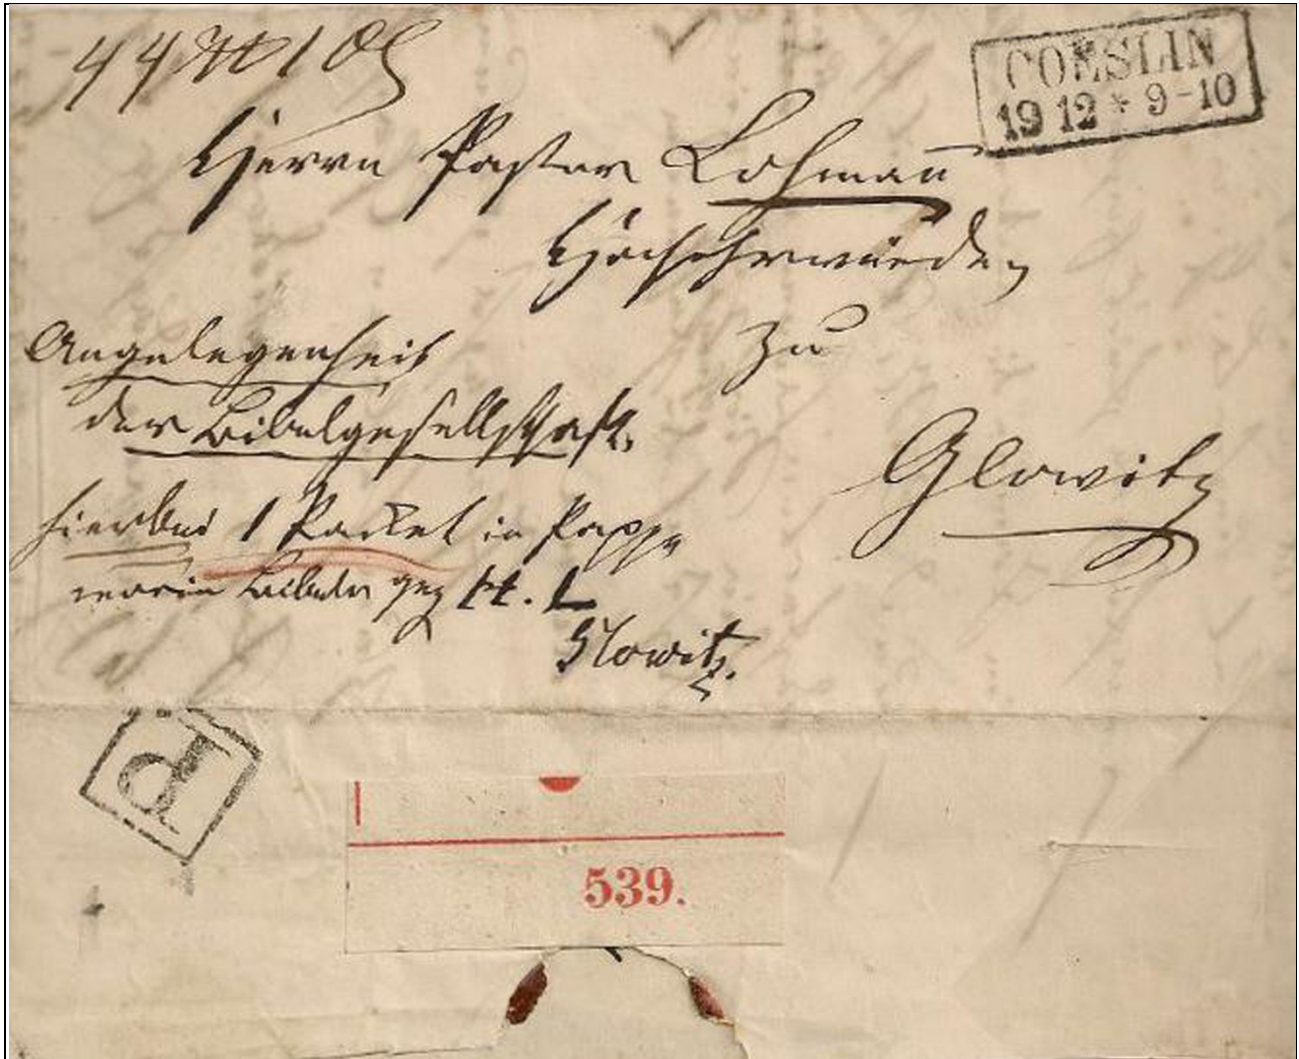 44 10
COESLIN
19 12 * 9-10
Herrn Pastor Lohmañ
Hochehrwürden
zu
Glowitz
Angelegenheit
der Bibelgesellschaft.
hierbei 1 Packet in Pappe
worin Bibeln gez H. L
Glowitz.
P
539.